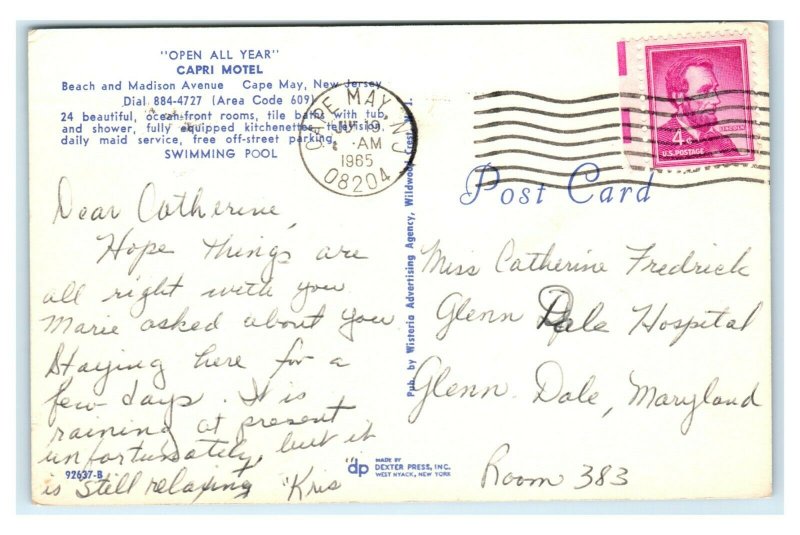 "OPEN ALL YEAR"
CAPRI MOTEL
Beach and Madison Avenue Cape May, New Jersey
Dial 884-4727 (Area Code 609)
24 beautiful, ocean-front rooms, tile baths with tub
and shower, fully equipped kitchenettes, television,
daily maid service, free off-street parking.
SWIMMING POOL
Dear Catherine,
Hope things are
all right with you
Marie asked about you
Staying here for a
few days. It is
raining at present
unfortunately, but it
is still relaxing Kris
92637-B
CAPE MAY, N.J.
19
AM
1965
08204
4¢
LINCOLN
U.S. POSTAGE
Post Card
Pub. by Wisteria Advertising Agency, Wildwood Crest, N. J.
Miss Catherine Fredrick
Glenn Dale Hospital
Glenn Dale, Maryland
Room 383
dp
MADE BY
DEXTER PRESS, INC.
WEST NYACK, NEW YORK